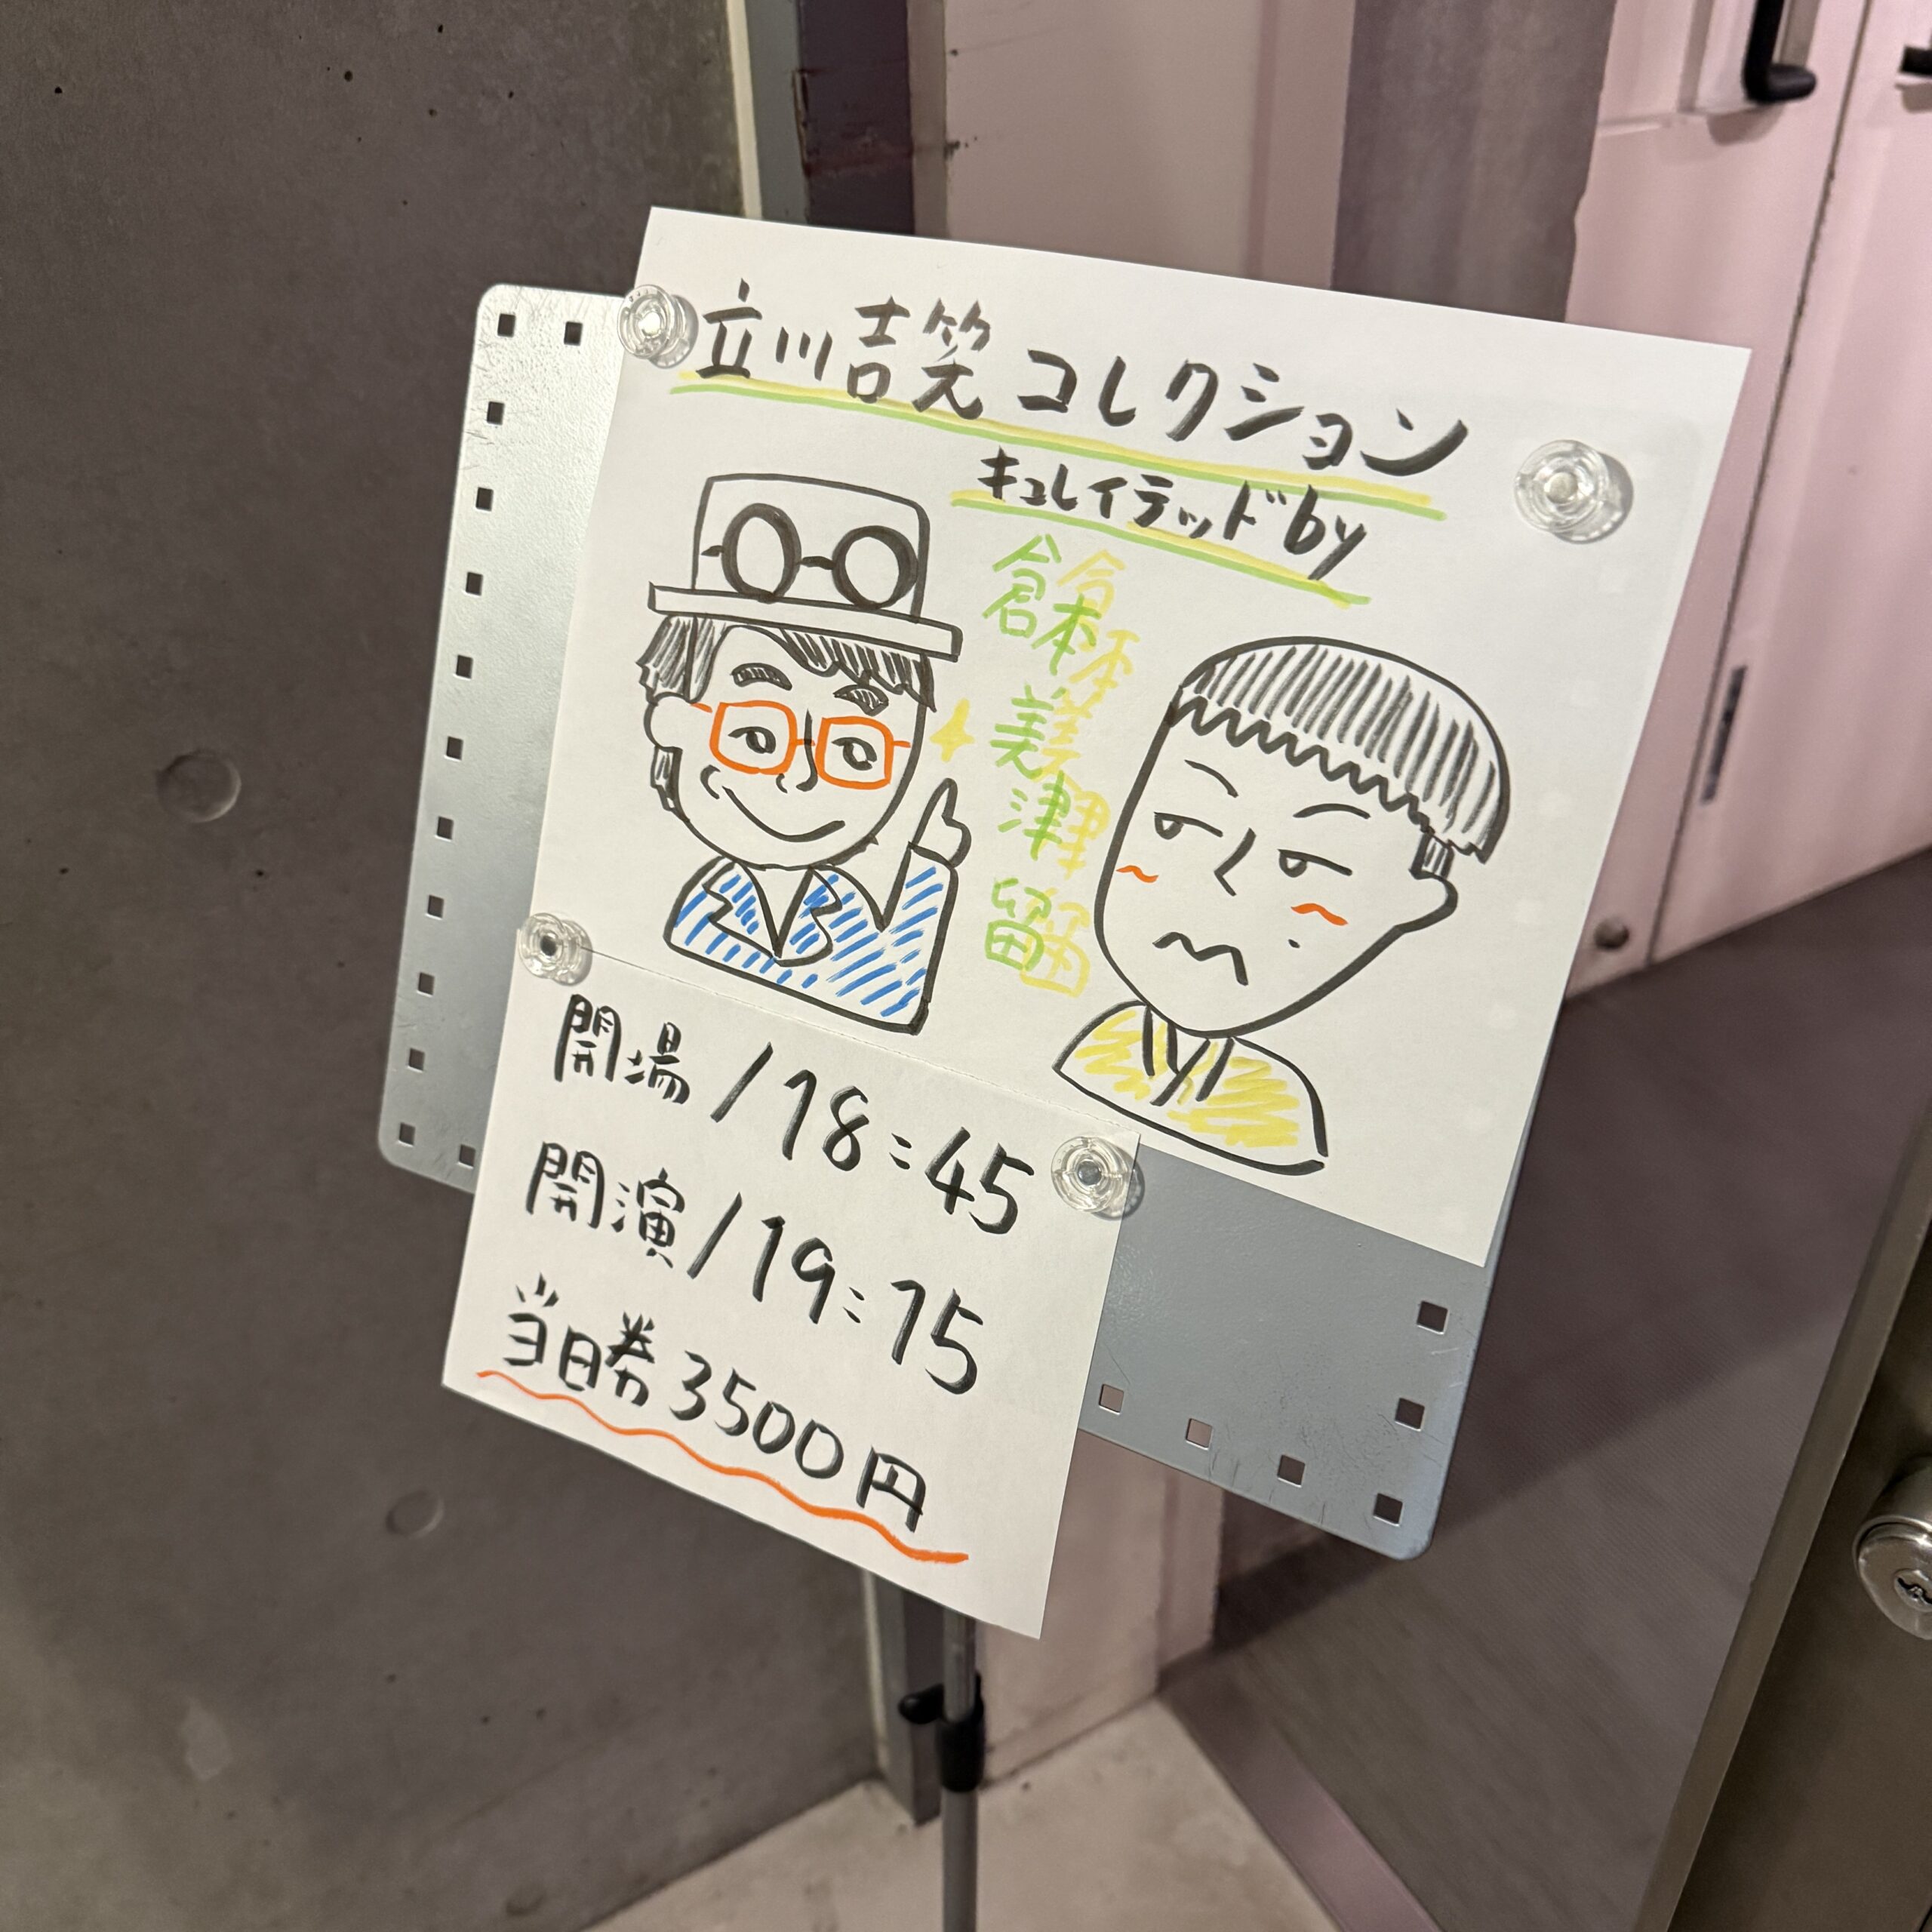 立川吉笑コレクション
キュレイテッドby
倉本美津留
開場/18:45
開演/19:15
当日券3500円